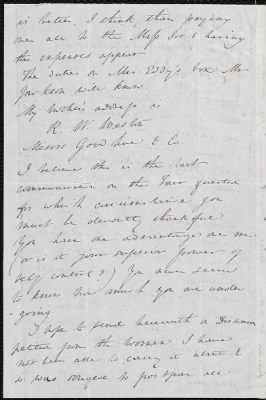 is better, I think, than paying
one all to the Mass Soc & having
the expenses appear.
The duties on Mrs Eddy's box Mr
Jackson will know.
My brother's address is
R. W. Weston
Messrs Goodhue & Co
I believe this is the last
communication on the Fair question
for which communication you
must be devoutly thankful
(You have one advantage over me
(or is it your superior power of
self control?) You never seem
to know how much you are under
-going.
I hope to send herewith a Disunion
petition from the women. I have
not been able to carry it about &
so was obliged to